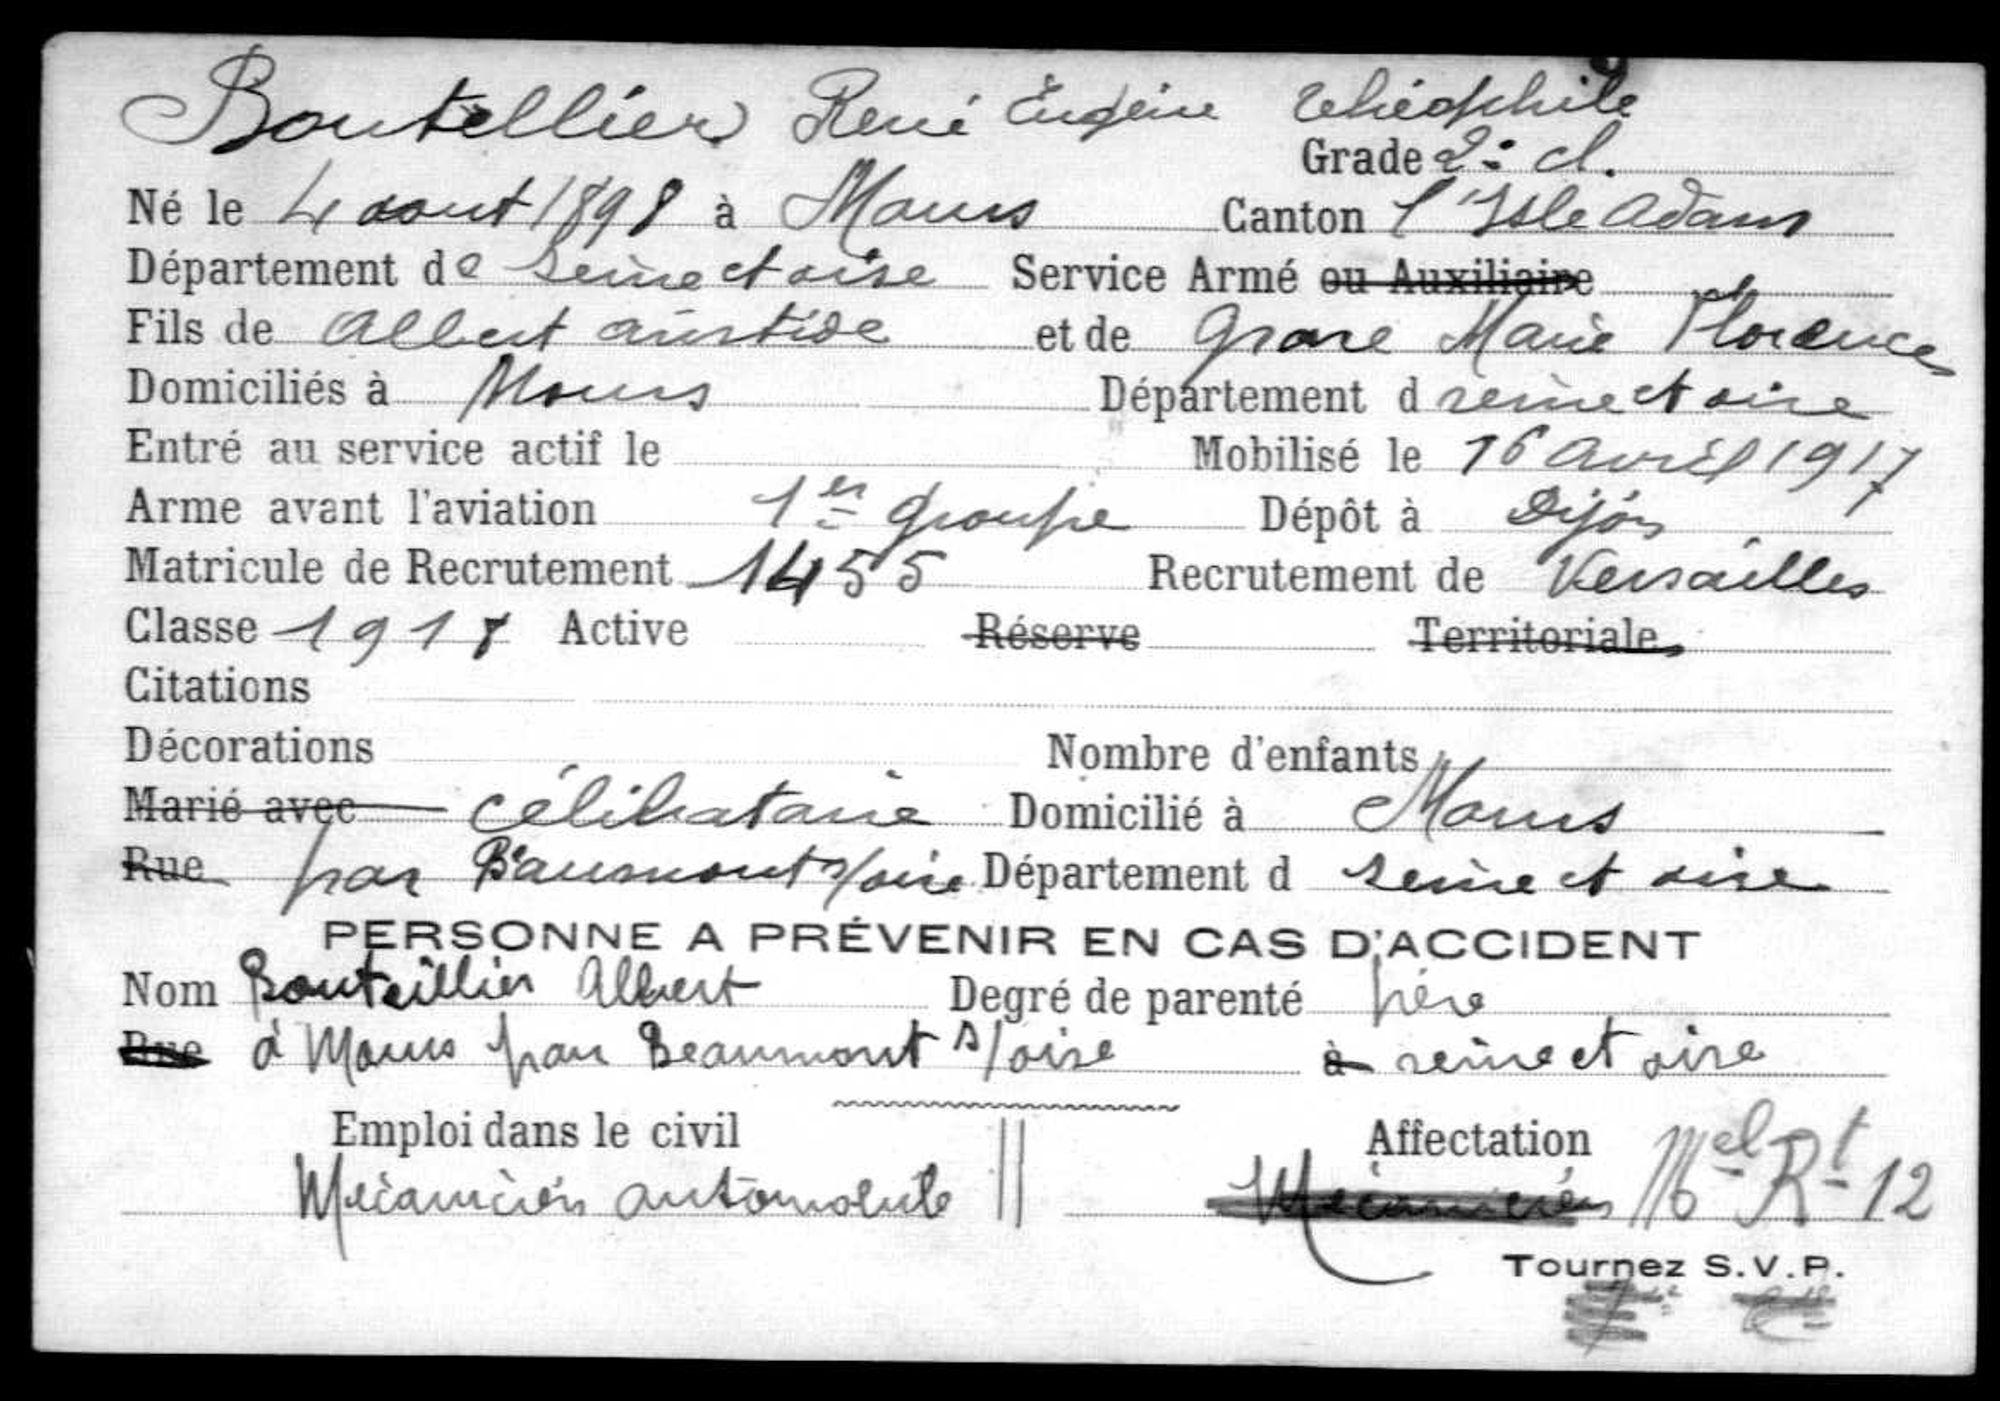 Boutellier René Eugène théophile
Grade 2e cl.
Né le 4 aout 1898 à Mours Canton l'Isle Adam
Département de seine et oise Service Armé ou Auxiliaire
Fils de Albert aristide et de Marie Florence
Domiciliés à Mours Département d seine et oise
Entré au service actif le Mobilisé le 16 avril 1917
Arme avant l'aviation 1er groupe Dépôt à Dijon
Matricule de Recrutement 1455 Recrutement de Versailles
Classe 1918 Active Réserve Territoriale
Citations
Décorations Nombre d'enfants
Marié avec célibataire Domicilié à Mours
Rue par Beaumont s/oise Département d seine et oise
PERSONNE A PRÉVENIR EN CAS D'ACCIDENT
Nom Bouteillier Albert Degré de parenté père
Rue à Mours par Beaumont s/oise à seine et oise
Emploi dans le civil Affectation
Mécanicien automobile Mécanicien Mel Rt 12
Tournez S.V.P.